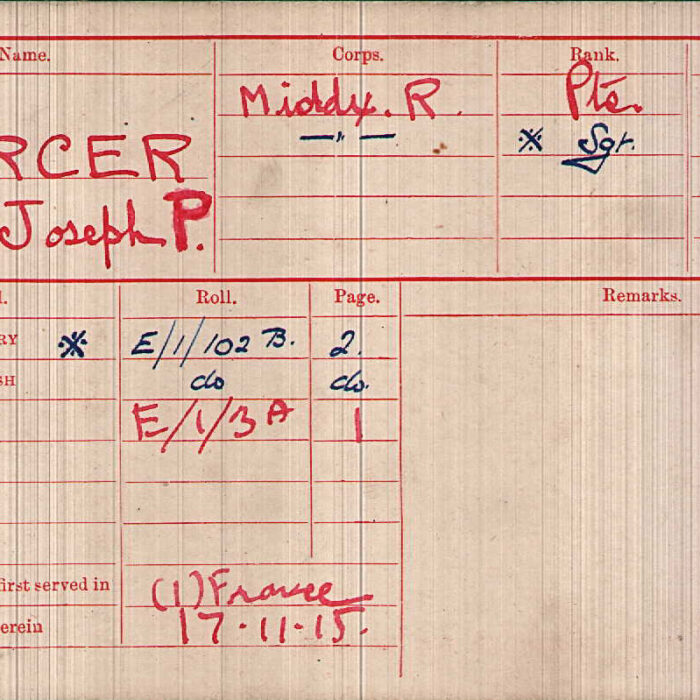 Name. Corps. Rank.
Middx. R. Pte.
RCER — " — ※ Sgt.
Joseph P.
Roll. Page. Remarks.
RY ※ E/1/102 B. 2.
SH do do.
E/1/3A 1
first served in (1) France
erein 17-11-15.